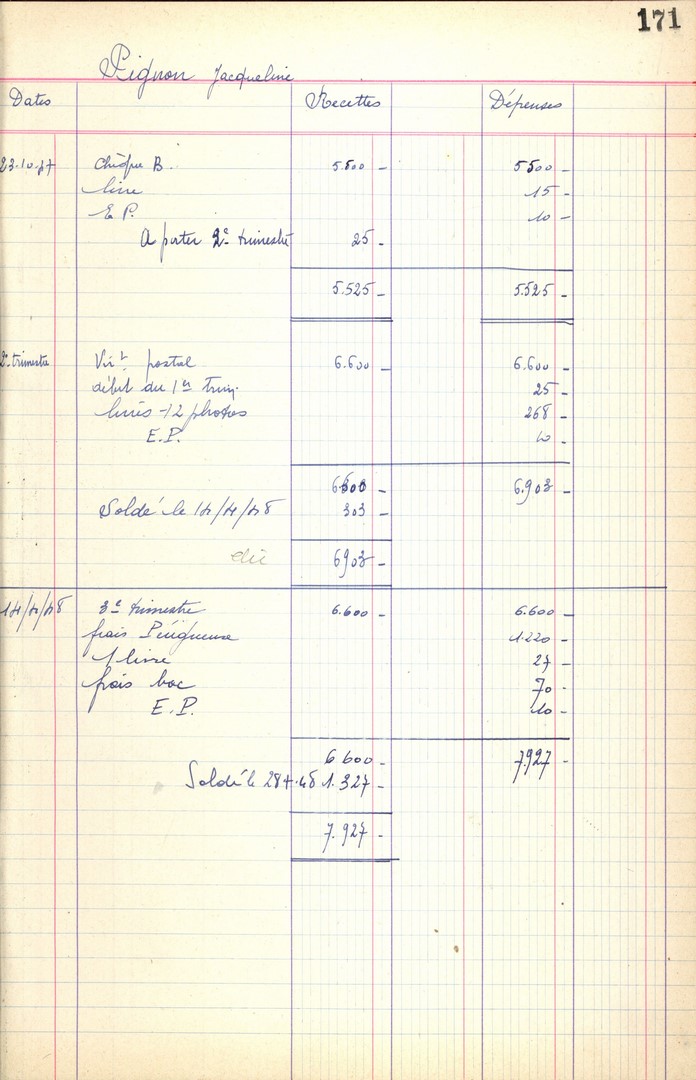 171
Pignon Jacqueline
Dates Recettes Dépenses
23.10.47 Chèque B. 5.500 - 5500 -
livre 15 -
E P. 10 -
A porter 2e trimestre 25 -
5.525 - 5.525 -
2e trimestre Virt postal 6.600 - 6.600 -
débit du 1er trim. 25 -
livres - 12 photos 268 -
E.P. 10 -
6600 - 6.903 -
Soldé le 14/4/48 303 -
6903 -
14/4/48 3e trimestre 6.600 - 6.600 -
frais Périgueux 1.220 -
1 livre 27 -
frais bac 70 -
E.P. 10 -
6 600 - 7.927 -
Soldé le 28 7.48 1.327 -
7.927 -